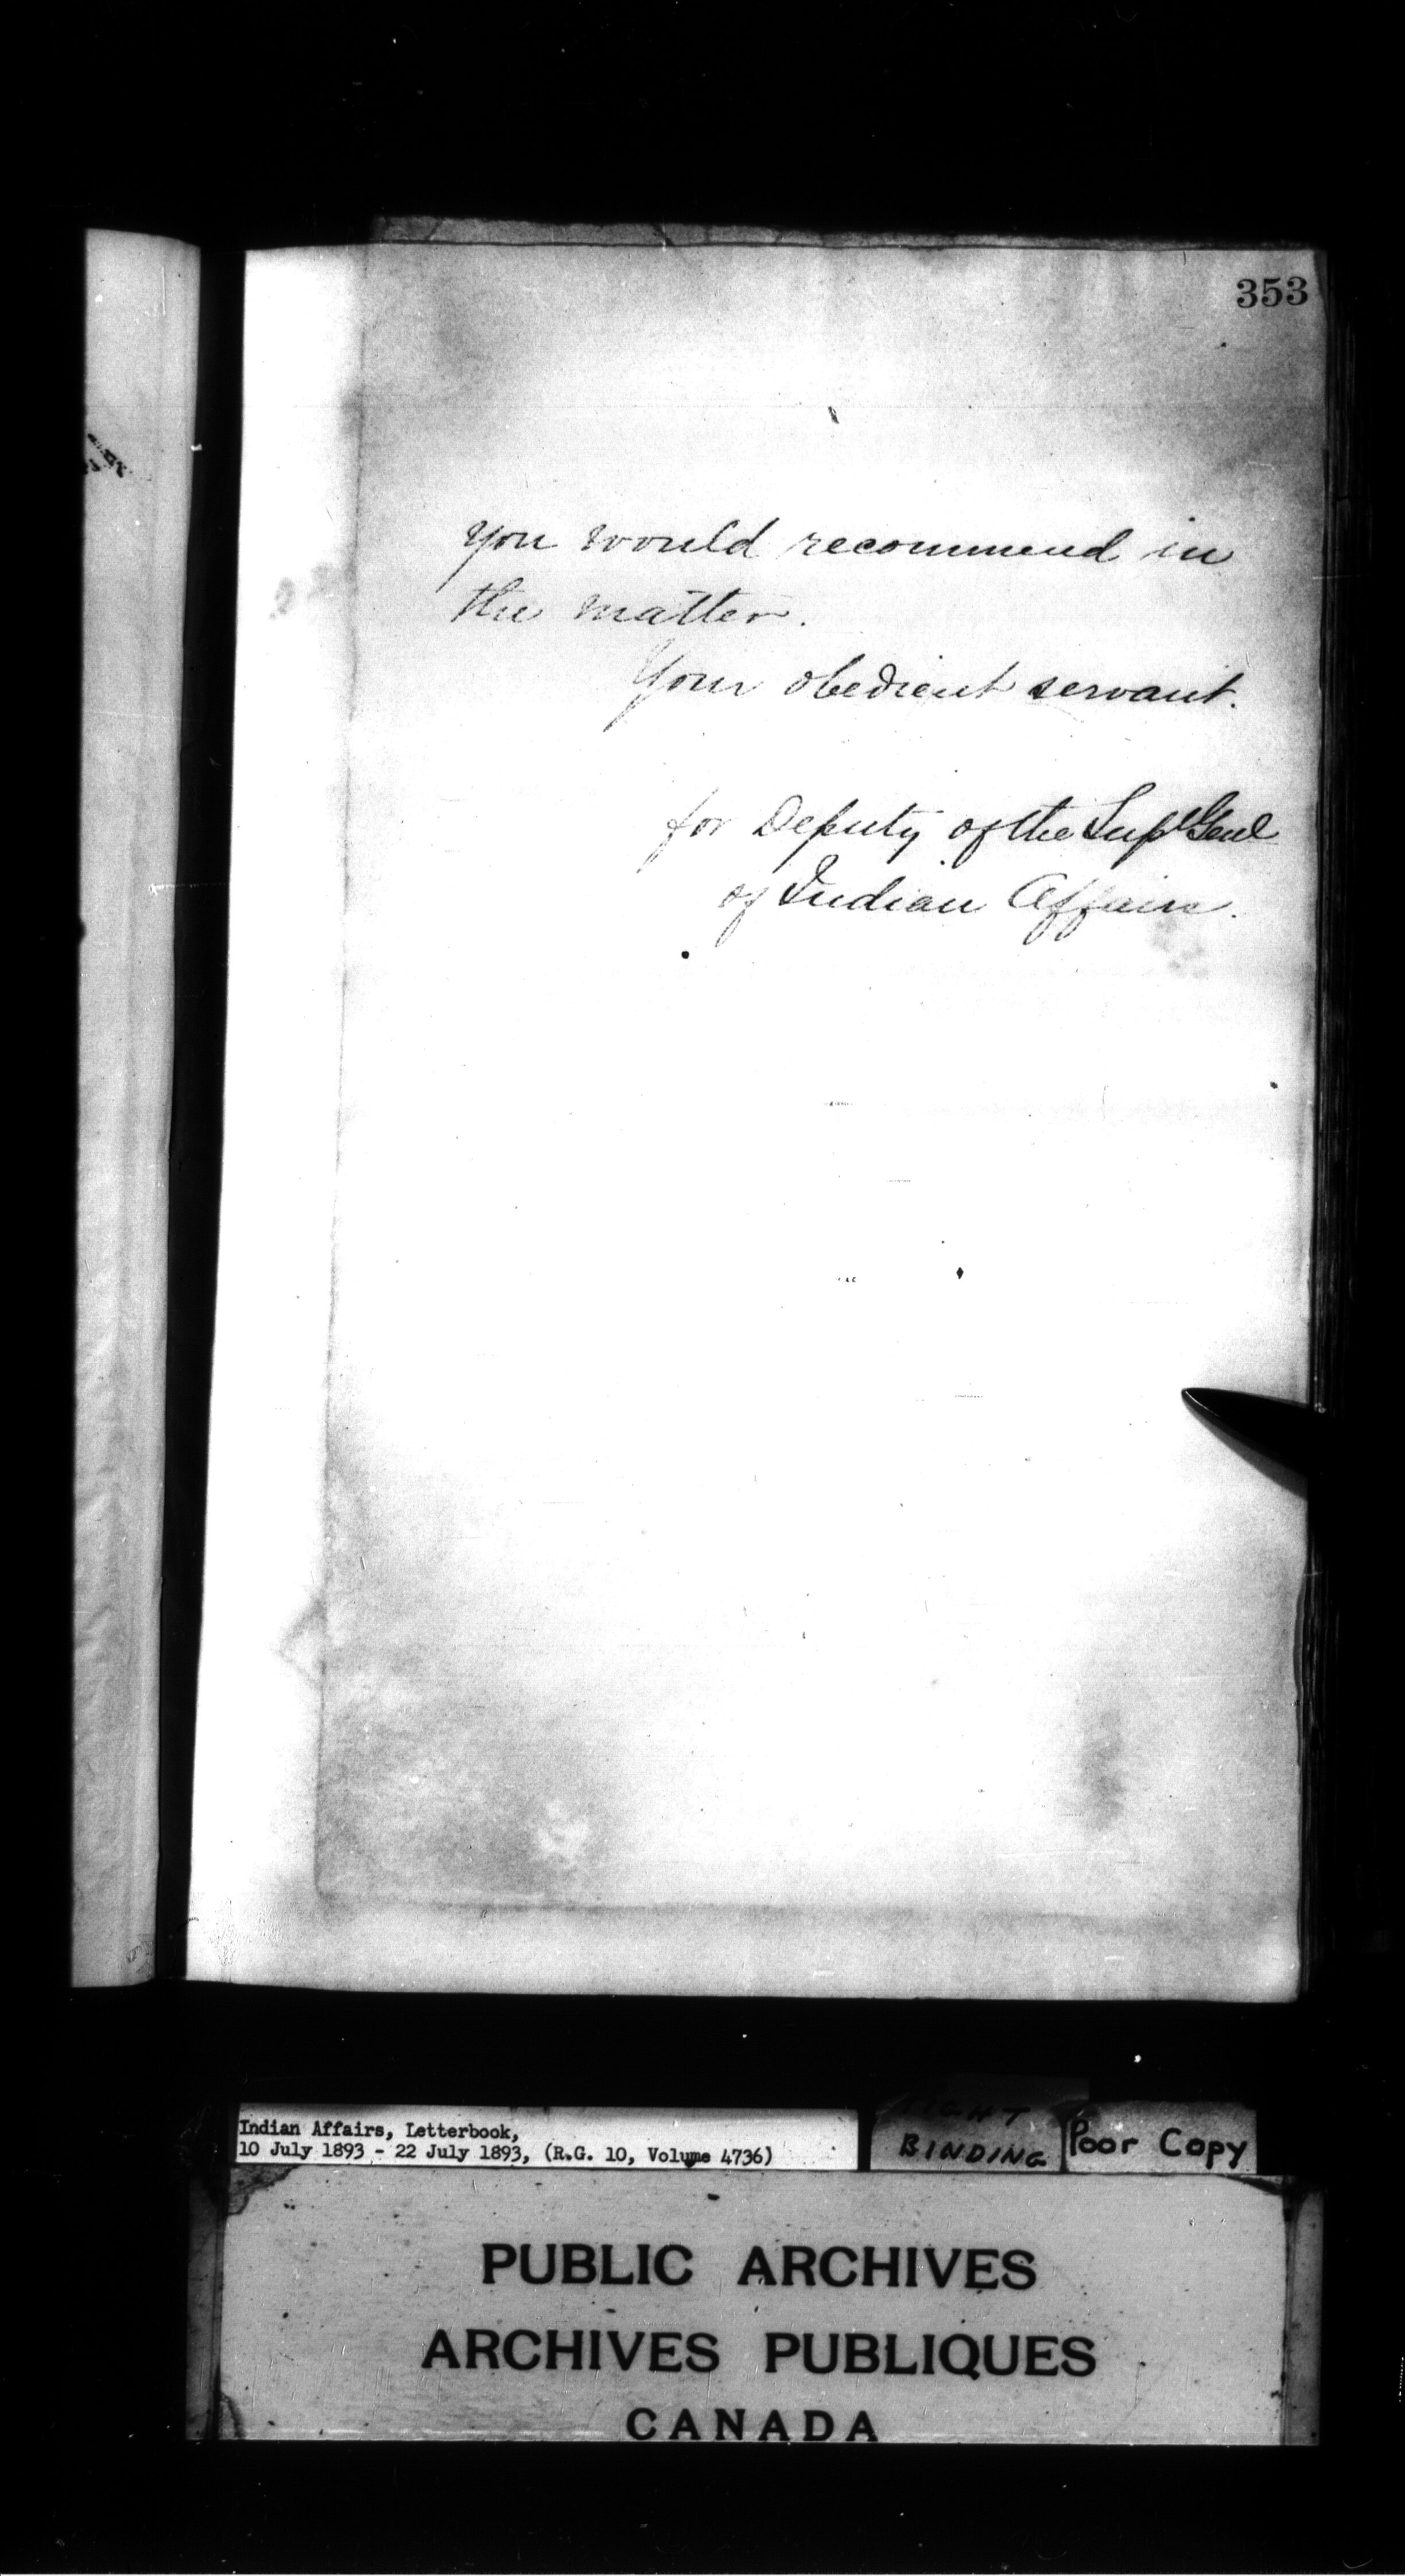 353
you would recommend in
the matter.
Your obedient servant.
for Deputy of the Supt Genl
of Indian Affairs.
Indian Affairs, Letterbook,
10 July 1893 - 22 July 1893, (R.G. 10, Volume 4736)
TIGHT
BINDING
Poor Copy
PUBLIC ARCHIVES
ARCHIVES PUBLIQUES
CANADA